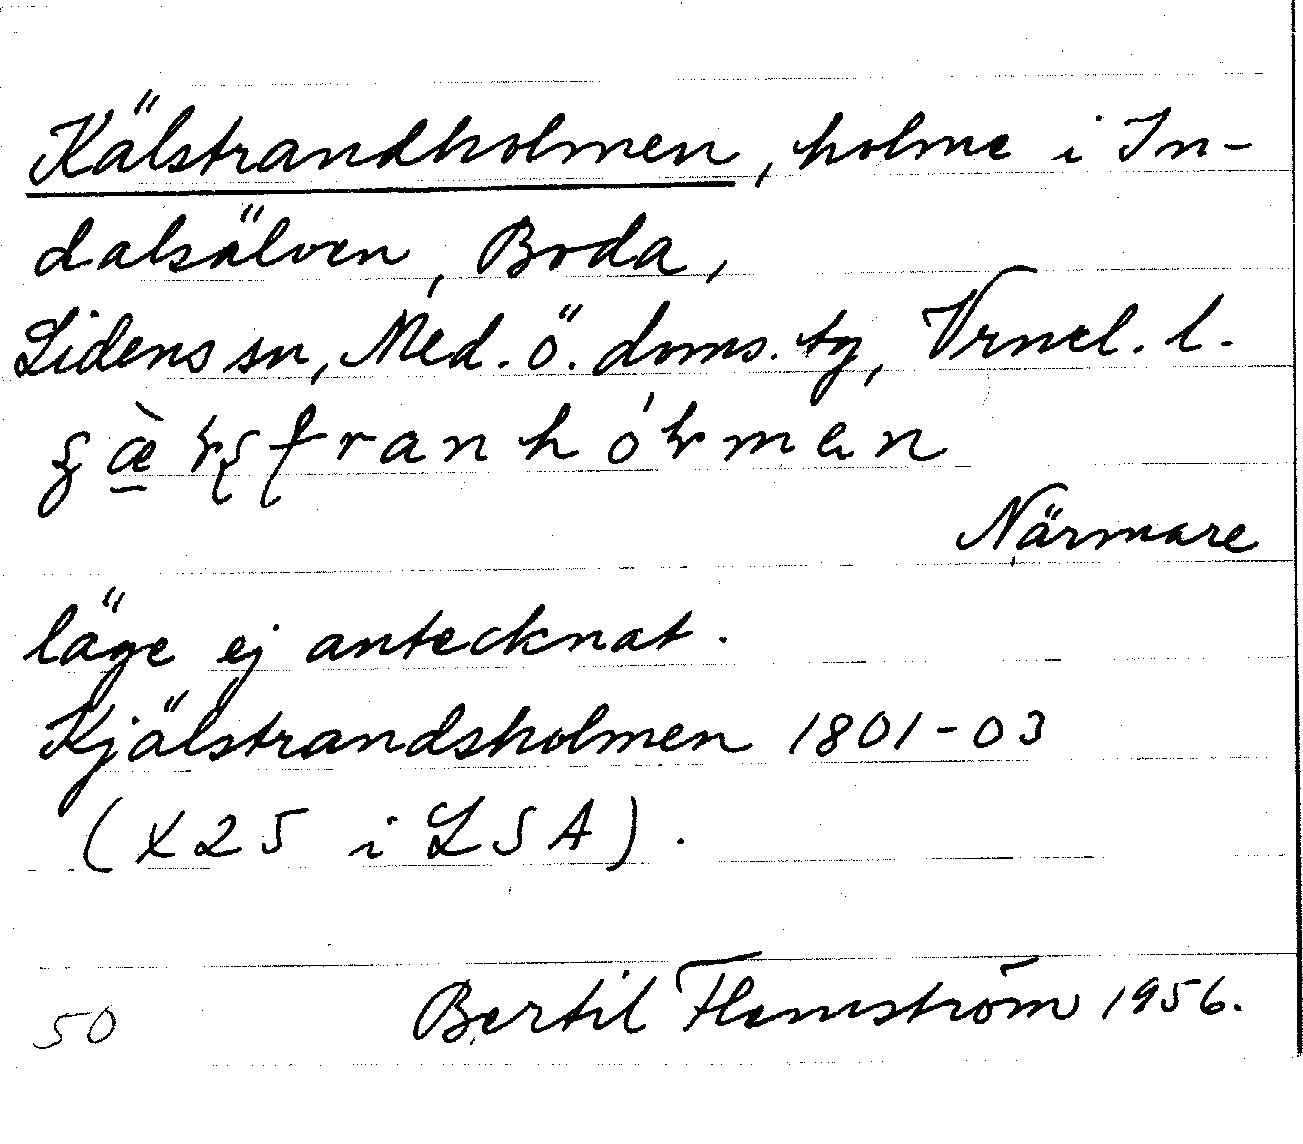 Kälstrandholmen, holme i In-
dalsälven, Boda,
Lidens sn, Med. ö. doms. tg, Vrnel. l.
Närmare
läge ej antecknat.
Kjälstrandsholmen 1801-03
(X25 i LSA).
50 Bertil Flemström 1956.